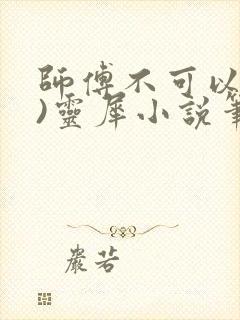 師傅不可以
)靈犀小說筆
嚴若